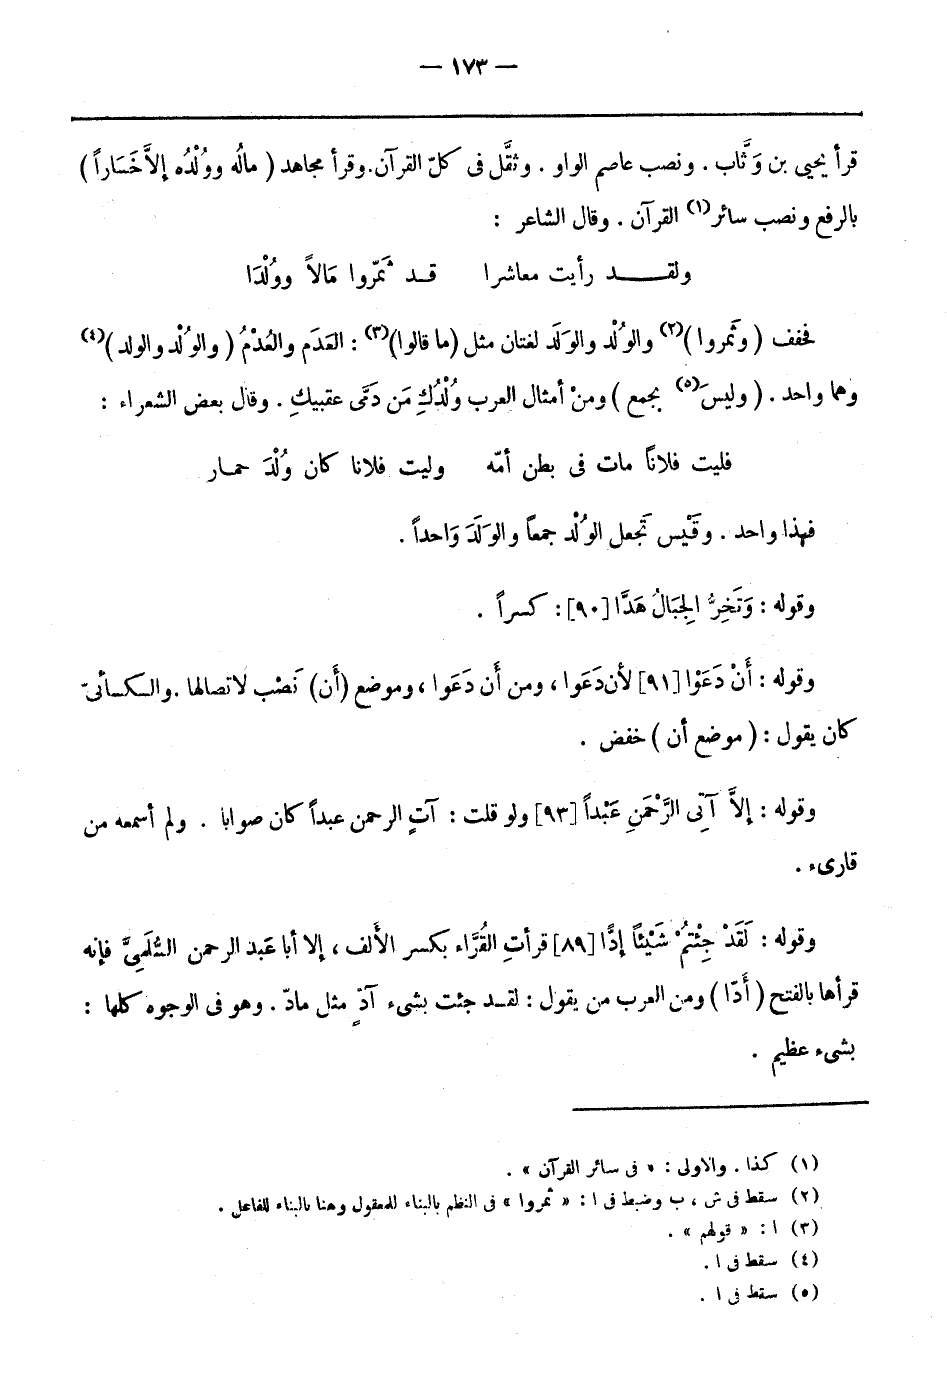 — ١٧٣ —
قرأ يحيى بن وَثَّاب . ونصب عاصم الواو . وثقَّل فى كلّ القرآن.وقرأ مجاهد ( مالُه ووُلْدُه إلاَّ خَسَاراً )
بالرفع ونصب سائر(١) القرآن . وقال الشاعر :
ولقـــد رأيت معاشرا قـد ثَمّروا مَالاً ووُلْدَا
فخفف ( وثَمروا )(٢) والوُلْد والوَلَد لغتان مثل (ما قالوا)(٣) : العَدَم والعُدْمُ ( والوُلْد والولد )(٤)
وهما واحد . ( وليسَ(٥) بجمع ) ومنْ أمثال العرب وُلْدُكِ مَن دَمَّى عقبيكِ . وقال بعض الشعراء :
فليت فلاناً مات فى بطن أمّه وليت فلانا كان وُلْدَ حمـار
فهذا واحد . وقَيْس تَجعل الوُلْد جمعاً والوَلَدَ وَاحداً .
وقوله : وَتَخِرُّ الجِبَالُ هَدًّا [٩٠] : كسراً .
وقوله : أَنْ دَعَوْا [٩١] لأن دَعَوا ، ومن أَن دَعَوا ، وموضع (أَن) نَصْب لاتصالها . والكسائىّ
كان يقول : ( موضع أن ) خفض .
وقوله : إلاَّ آتِى الرَّحْمَنِ عَبْداً [٩٣] ولو قلت : آتٍ الرحمن عبداً كان صوابا . ولم أسمعه من
قارىء .
وقوله : لَقَدْ جِئْتُمْ شَيْئاً إدًّا [٨٩] قرأتِ القُرَّاء بكسر الأَلف ، إلا أبا عَبد الرحمن السُّلَمِىَّ فإنه
قرأها بالفتح ( أَدّا ) ومن العرب من يقول : لقـد جئت بشىء آدّ مثل مادّ . وهو فى الوجوه كلها :
بشىء عظيم .
(١) كذا . والاولى : « فى سائر القرآن » .
(٢) سقط فى ش ، ب وضبط فى ا : « ثمروا » فى النظم بالبناء للمفعول وهنا بالبناء للفاعل .
(٣) ا : « قولهم » .
(٤) سقط فى ا .
(٥) سقط فى ا .